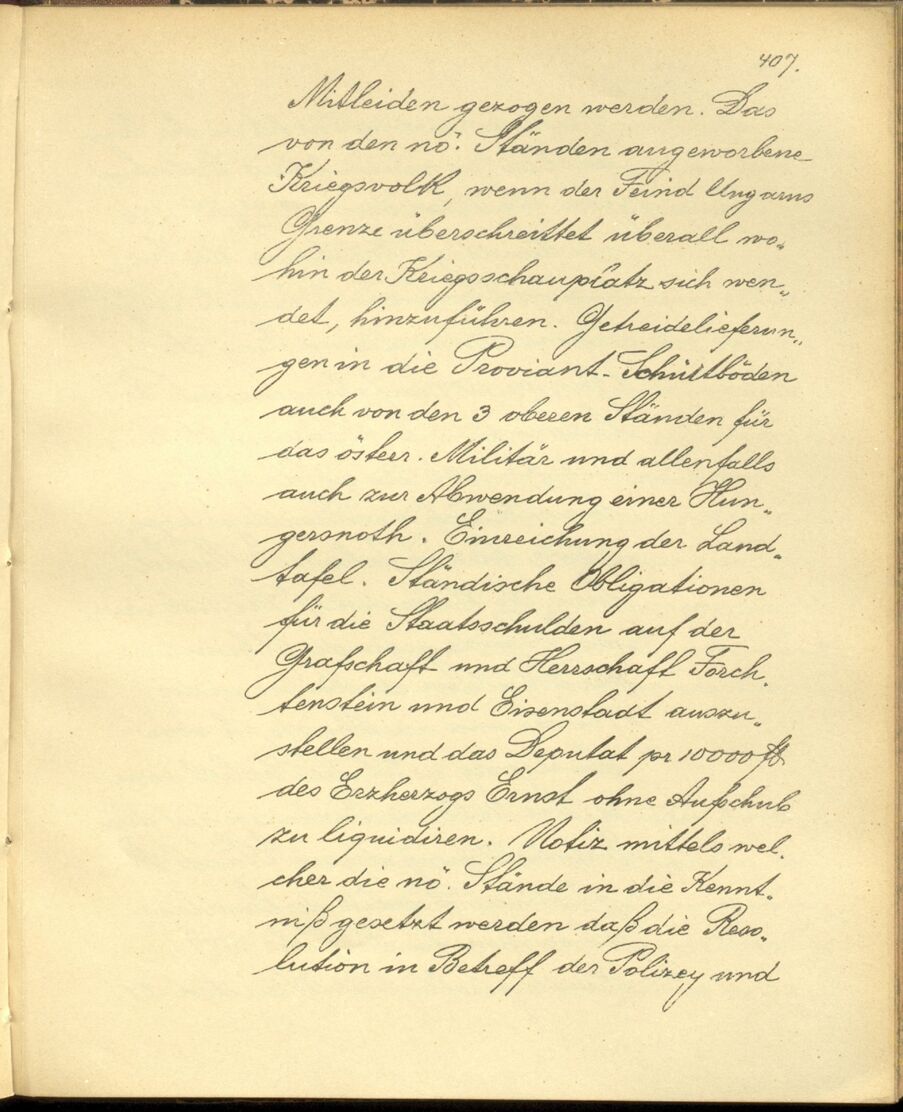 407.
Mitleiden gezogen werden. Das
von den nö. Ständen angeworbene
Kriegsvolk, wenn der Feind Ungarns
Grenze überschreittet überall wo„
hin der Kriegsschauplatz sich wen„
det, hinzuführen. Getreidelieferun„
gen in die Proviant-Schüttböden
auch von den 3 oberen Ständen für
das österr. Militär und allenfalls
auch zur Abwendung einer Hun„
gersnoth. Einreichung der Land„
tafel. Ständische Obligationen
für die Staatsschulden auf der
Grafschaft und Herrschaft Forch„
tenstein und Eisenstadt auszu„
stellen und das Deputat pr 10000 fl
des Erzherzogs Ernst ohne Aufschub
zu liquidiren. Notiz mittels wel„
cher die nö. Stände in die Kennt„
niß gesetzt werden daß die Reso„
lution in Betreff der Polizey und